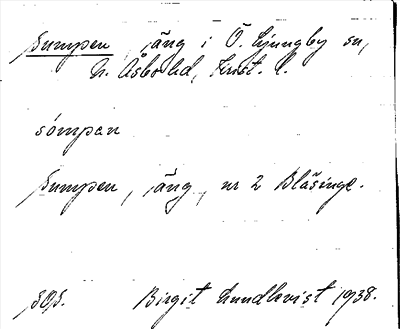 Sumpen, äng i Ö. Ljungby sn,
N. Åsbo hd, Krist. l.
sómpan
Sumpen, äng, nr 2 Blåsinge.
SOS. Birgit Lundkvist 1938.